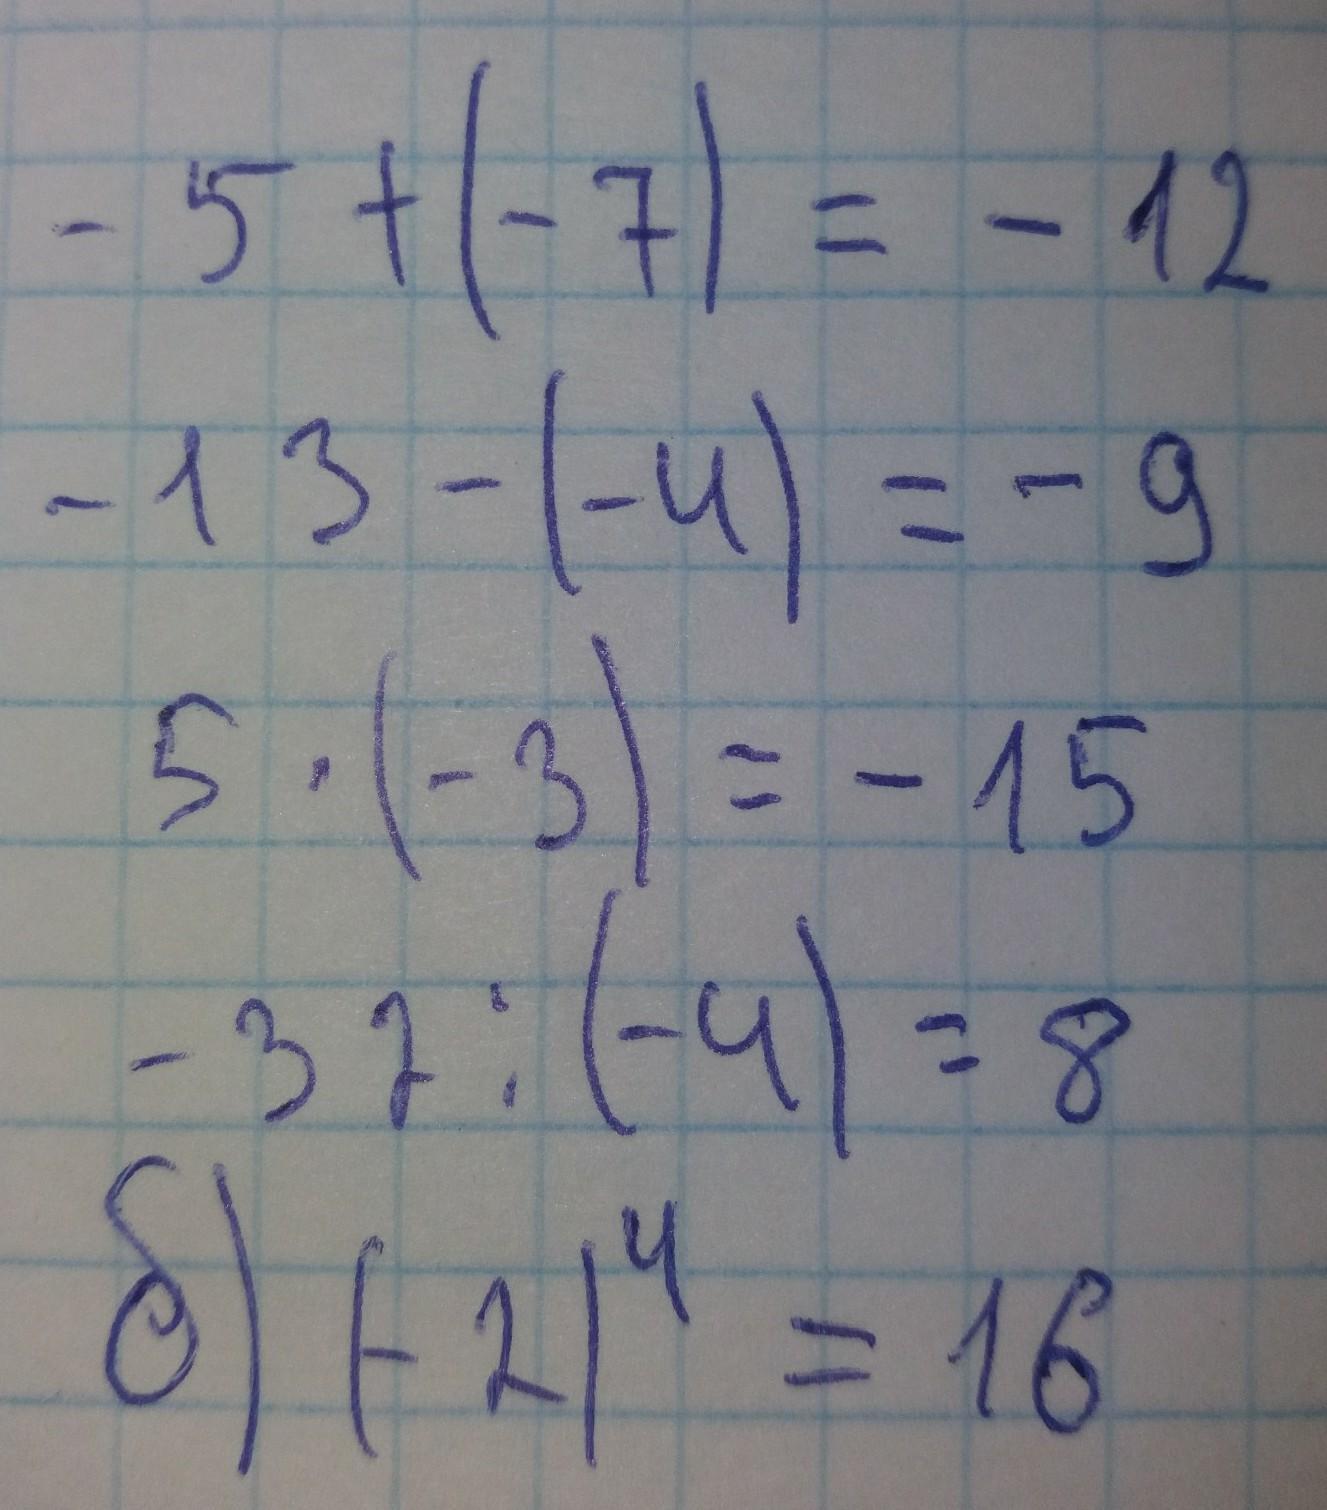 -5+(-7)=-12
-13-(-4)=-9
5·(-3)=-15
-32:(-4)=8
б) (-2)⁴=16